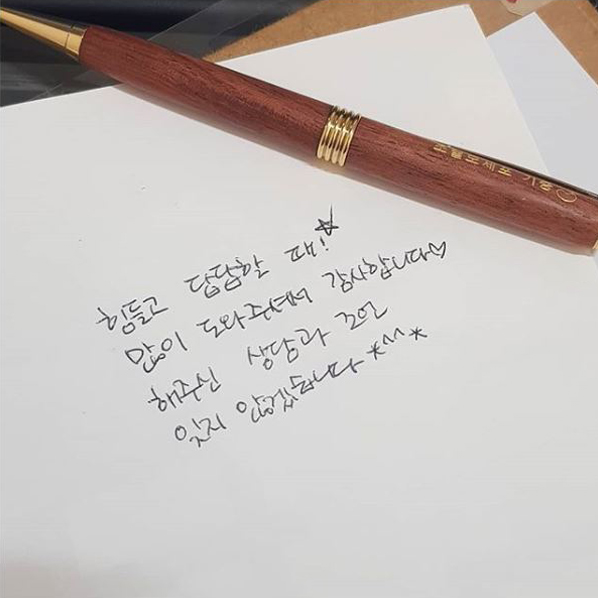 힘들고 답답할 때!☆
많이 도와주셔서 감사합니다♡
해주신 상담과 조언
잊지 않겠습니다 *^^*